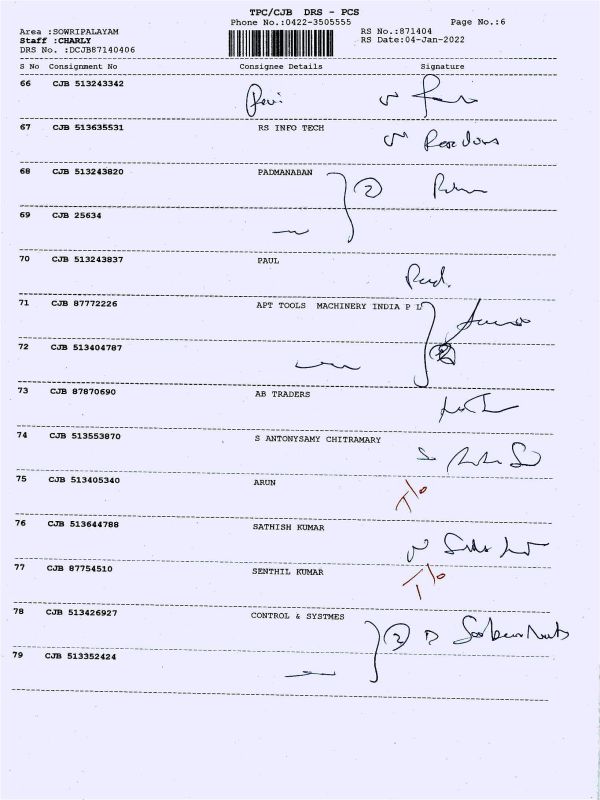 TPC/CJB DRS - PCS
Phone No.:0422-3505555 Page No.:6
Area :SOWRIPALAYAM RS No.:871404
Staff :CHARLY RS Date:04-Jan-2022
DRS No. :DCJB87140406
S No Consignment No Consignee Details Signature
66 CJB 513243342
67 CJB 513635531 RS INFO TECH
68 CJB 513243820 PADMANABAN 2
69 CJB 25634
70 CJB 513243837 PAUL
71 CJB 87772226 APT TOOLS MACHINERY INDIA P L
72 CJB 513404787
73 CJB 87870690 AB TRADERS
74 CJB 513553870 S ANTONYSAMY CHITRAMARY
75 CJB 513405340 ARUN T/o
76 CJB 513644788 SATHISH KUMAR
77 CJB 87754510 SENTHIL KUMAR T/o
78 CJB 513426927 CONTROL & SYSTMES 2
79 CJB 513352424